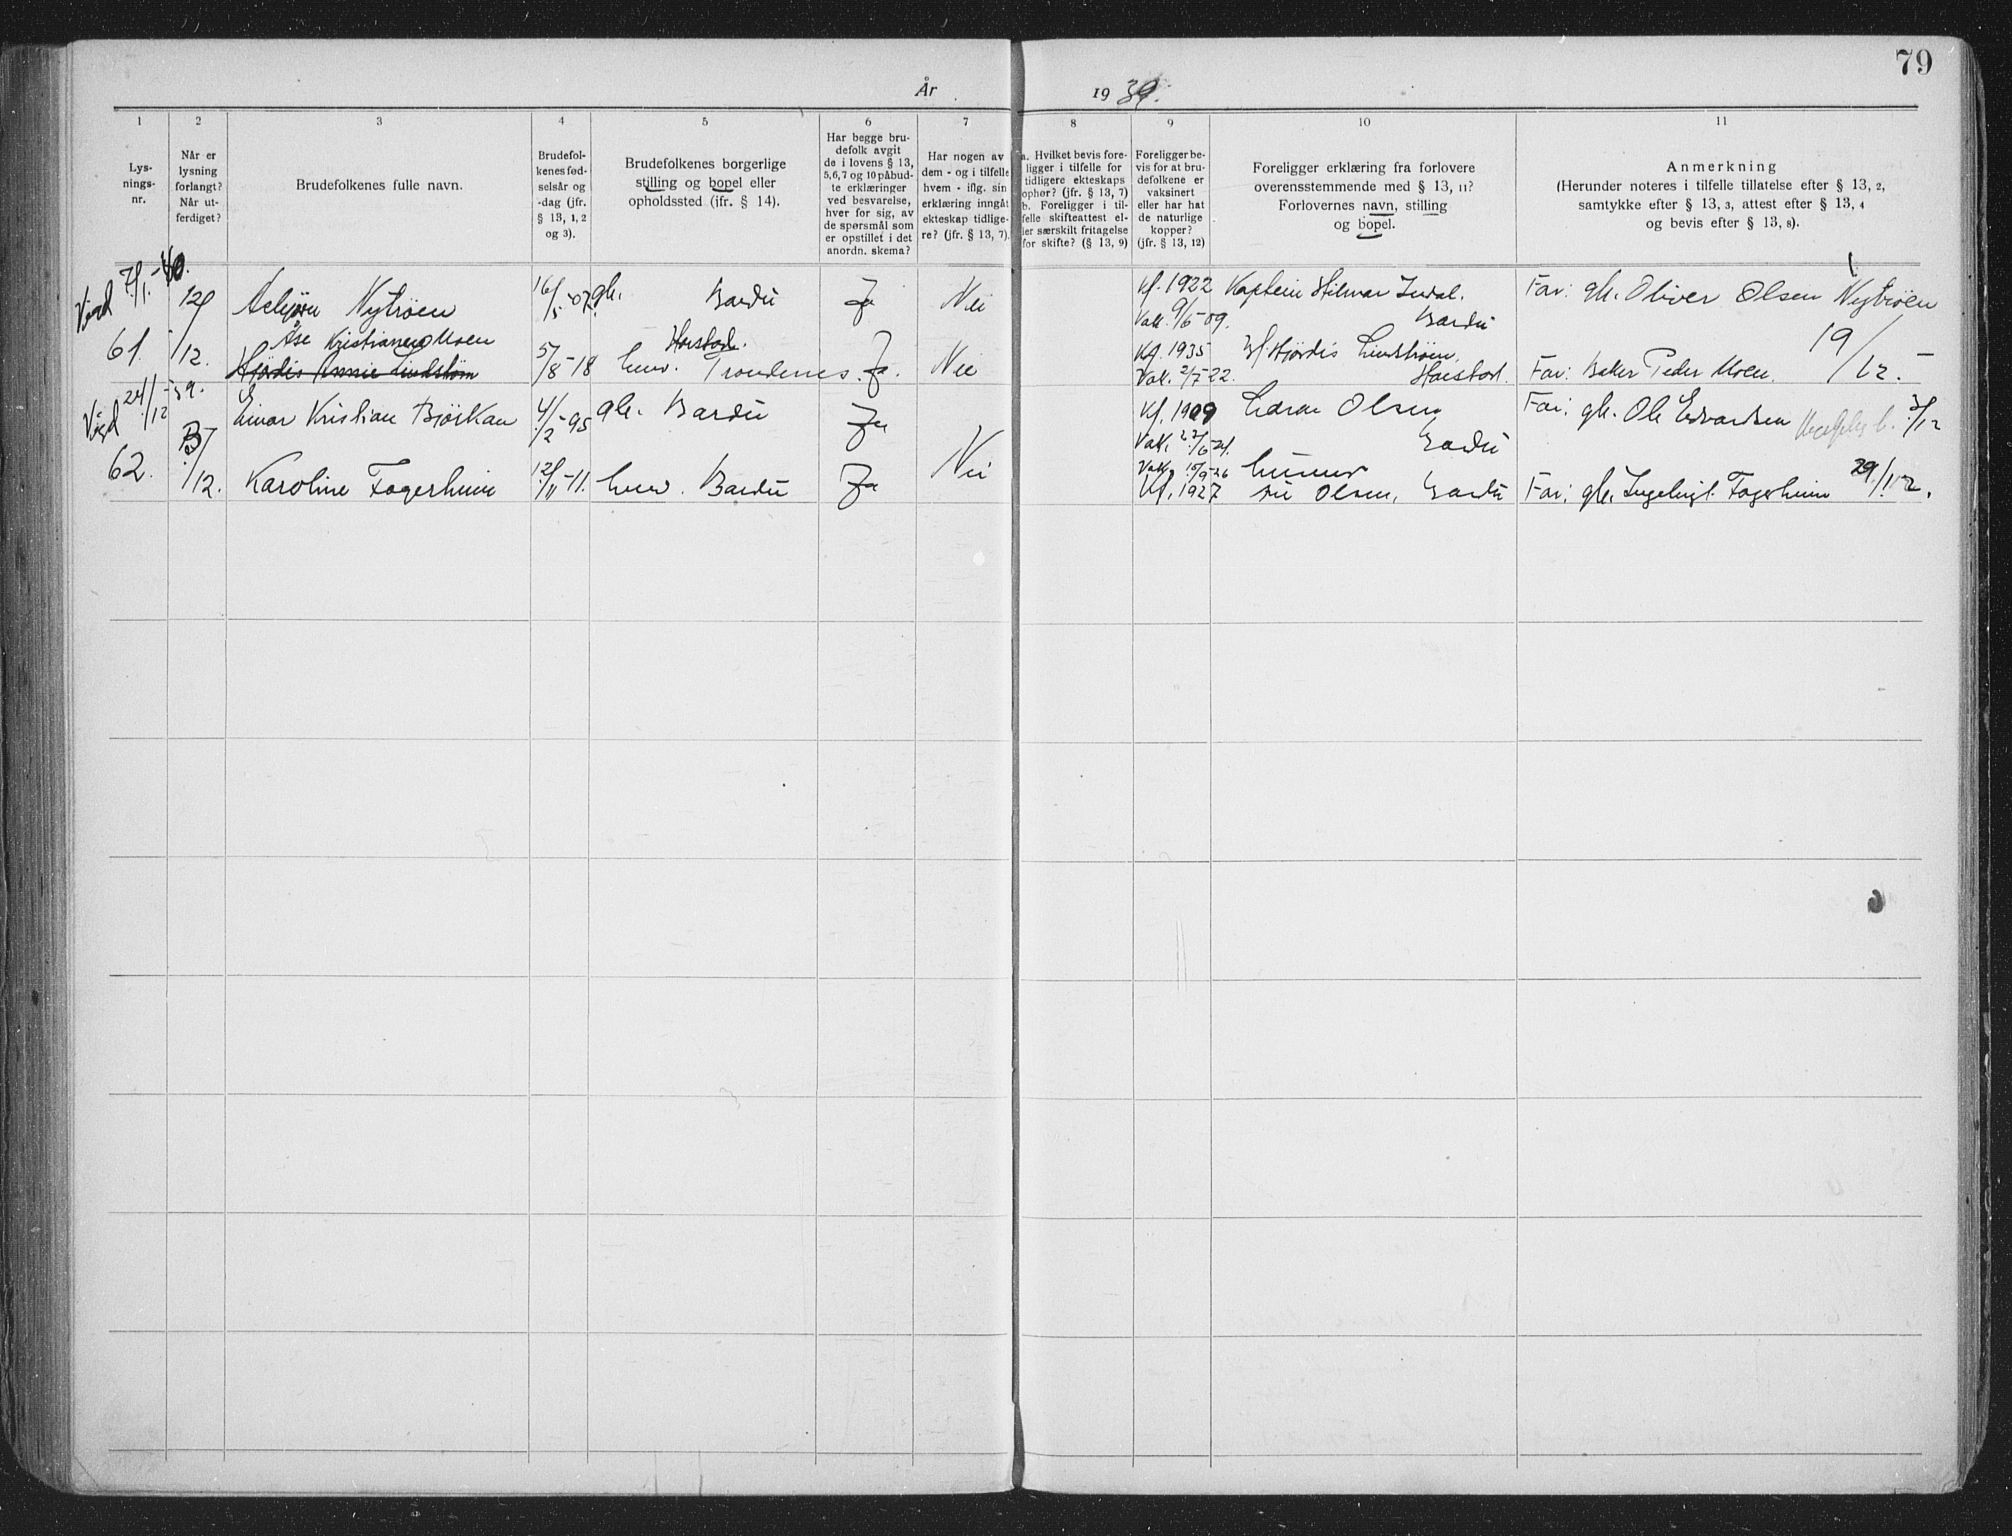 79
År 1939.
1
2
3
4
5
6
7
8
9
10
11
Lys-
nings-
nr.
Når er
lysning
forlangt?
Når ut-
ferdiget?
Brudefolkenes fulle navn.
Brudefol-
kenes fød-
selsår og
-dag (jfr.
§ 13, 1, 2
og 3).
Brudefolkenes borgerlige
stilling og bopel eller
opholdssted (jfr. § 14).
Har begge bru-
defolk avgit
de i lovens § 13,
5,6,7 og 10 påbud-
te erklæringer
ved besvarelse,
hver for sig, av
de spørsmål som
er opstillet i det
anordn. skema?
Har nogen av
dem - og i tilfelle
hvem - iflg. sin
erklæring inngåt
ekteskap tidlige-
re? (jfr. § 13, 7).
a. Hvilket bevis fore-
ligger i tilfelle for
tidligere ekteskaps
ophør? (jfr. § 13, 7)
b. Foreligger i til-
felle skifteattest el-
ler særskilt fritagelse
for skifte? (§ 13, 9)
Foreligger be-
vis for at bru-
defolkene er
vaksinert
eller har hat
de naturlige
kopper?
(jfr. § 13, 12)
Foreligger erklæring fra forlovere
overensstemmende med § 13, 11?
Forlovernes navn, stilling
og bopel.
Anmerkning
(Herunder noteres i tilfelle tillatelse efter § 13, 2,
samtykke efter § 13, 3, attest efter § 13, 4
og bevis efter § 13, 8).
Vigd 7/1-40.
12/ Asbjørn Nytrøen 16/5-07. gbr. Bardu Ja Nei Kf. 1922 Kaptein Hilmar Indal. Far: gbr. Oliver Olsen Nytrøen
Vakk. 9/6-09. Bardu
Åse Kristiane Moen Harstad. 19/12.
61. /12. Hjørdis Annie Lindstøm 5/8-18 Trondenes. Ja. Nei Kf. 1935 Hjørdis Lindstrøm.
Vak. 2/7-22. Harstad. Far: Baker Peder Moen.
Vigd 24/12-39.
Einar Kristian Bjørkan 4/2-95 gbr. Bardu Ja Kf. 1909 Edvin Olsen Far: gbr. Ole Edvardsen
Vakk. Bardu
62. /12. Karoline Fagerheim 12/11-11. Bardu Ja Nei Vakk. 15/9-26
Kf. 1927 Olsen, Bardu Far: gbr. Fagerheim 29/12.